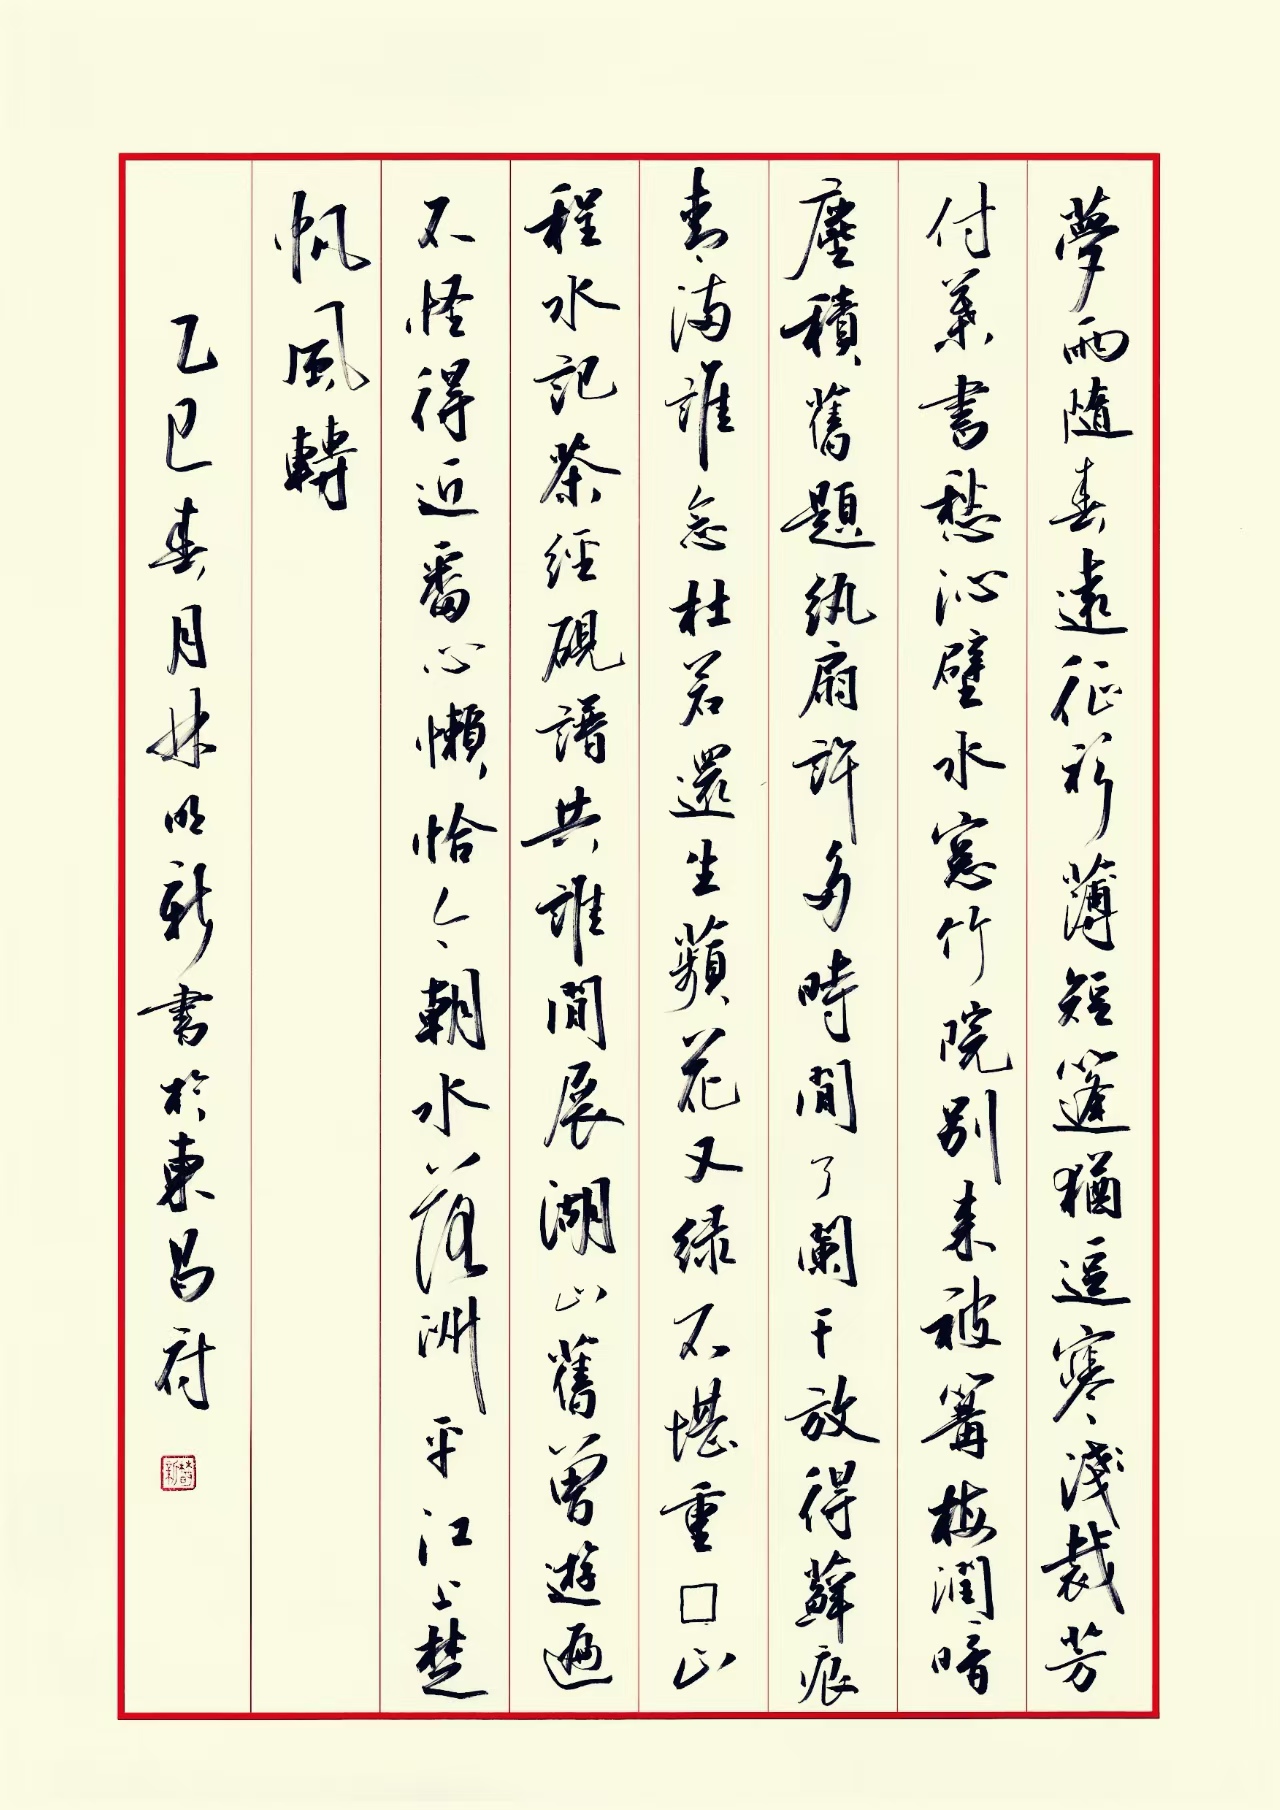 夢雨隨春遠征衫薄短篷猶逗寒淺裁芳
付葉書愁沁壁水窓竹院別来被篝梅潤暗
塵積舊題紈扇許多時閒了闌干放得蘚痕
青滿誰念杜若還生蘋花又緑不堪重□山
程水記茶經硯譜共誰閒展湖山舊曾遊遍
不怪得近番心懶恰今朝水落洲平江上楚
帆風轉
乙巳春月林明新書於東昌府